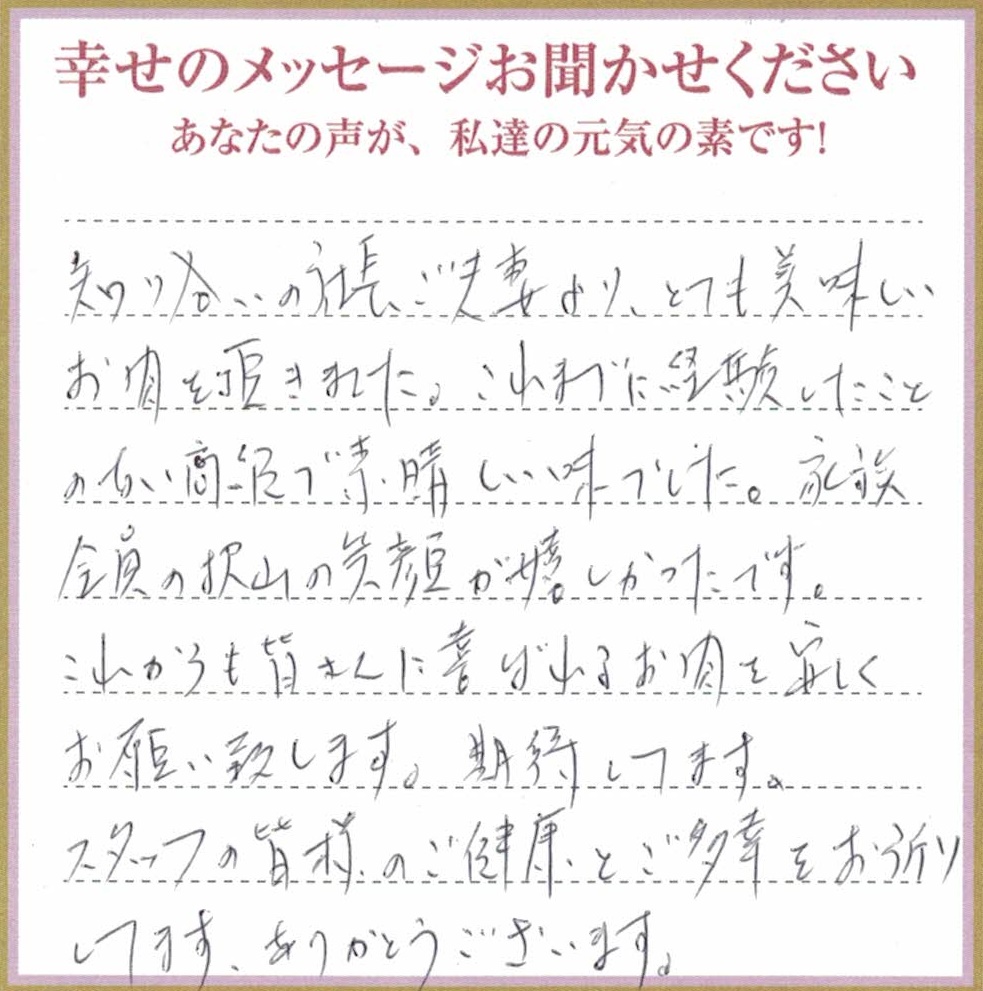 幸せのメッセージお聞かせください
あなたの声が、私達の元気の素です!
知り合いの社長ご夫妻より、とても美味しい
お肉を頂きました。これまでに経験したこと
のない高級で素晴しい味でした。家族
全員の沢山の笑顔が嬉しかったです。
これからも皆さんに喜ばれるお肉を宜しく
お願い致します。期待してます。
スタッフの皆様のご健康とご多幸をお祈り
してます、ありがとうございます。